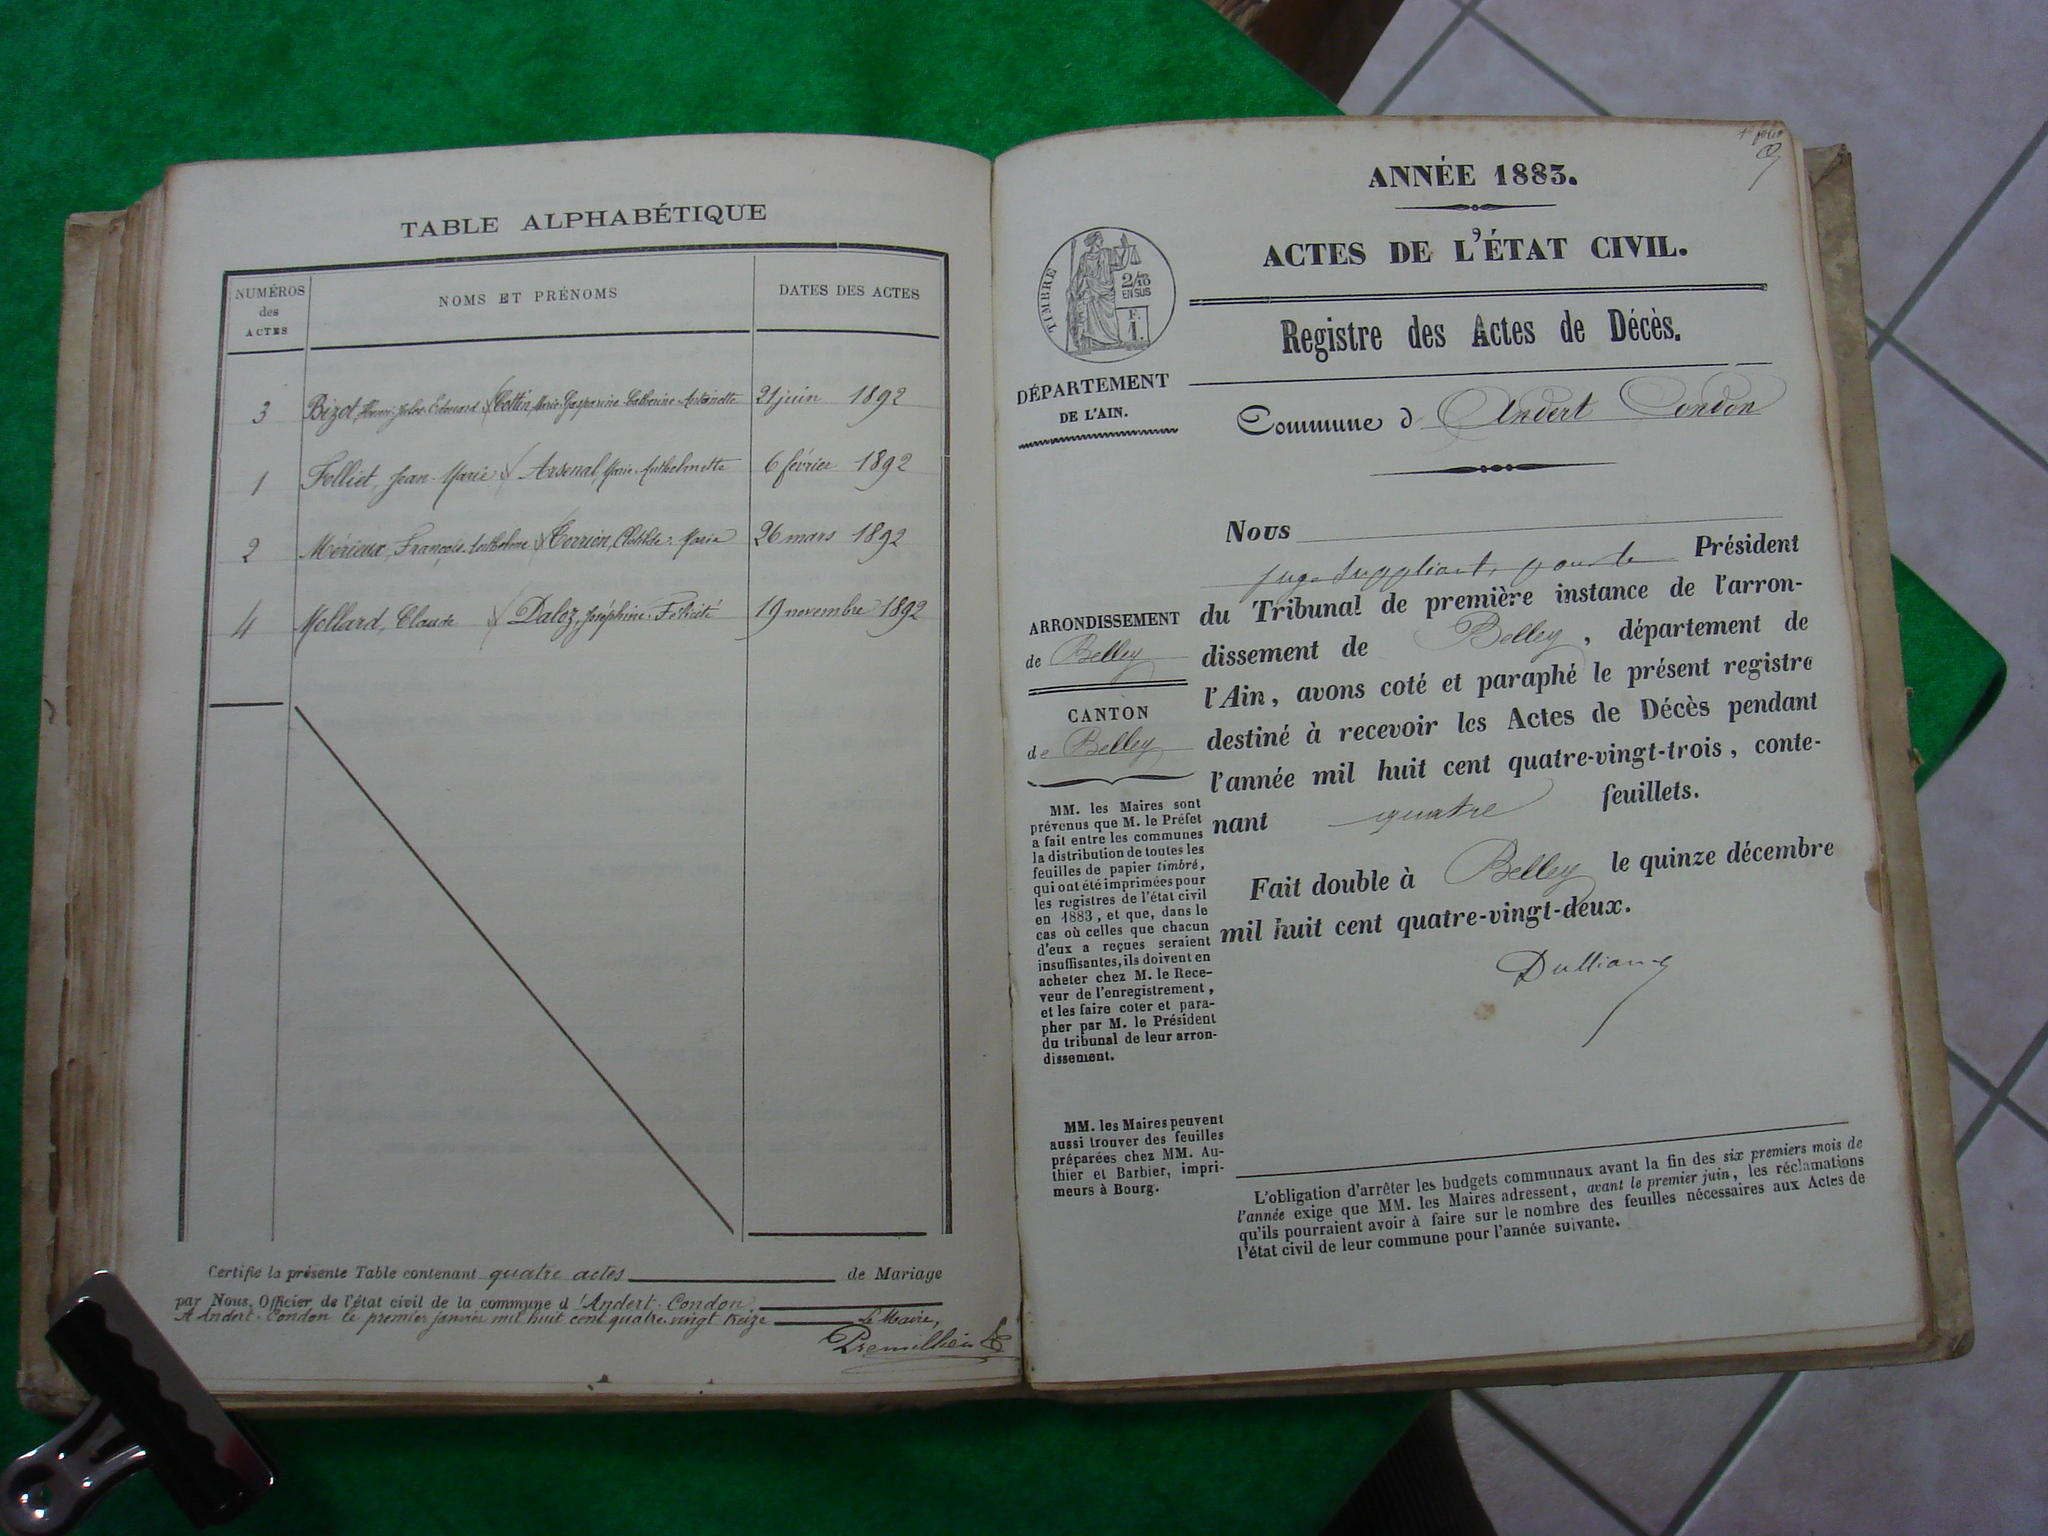 TABLE ALPHABÉTIQUE
NUMÉROS des ACTES
NOMS ET PRÉNOMS
DATES DES ACTES
3 Bizot, Henri Jules Edouard & Cottin, Marie Gasparine Catherine Antoinette 21 juin 1892
1 Folliet, Jean-Marie & Arsenal, Marie-Anthelmette 6 février 1892
2 Mérieux, François-Anthelme & Terrier, Clotilde-Maria 26 mars 1892
4 Mollard, Claude & Daloz, Joséphine-Félicité 19 novembre 1892
Certifie la présente Table contenant quatre actes de Mariage
par Nous, Officier de l'état civil de la commune d'Andert-Condon.
A Andert-Condon le premier janvier mil huit cent quatre-vingt treize Le Maire,
ANNÉE 1883.
ACTES DE L'ÉTAT CIVIL.
TIMBRE
2/10
EN SUS
F.
1.
Registre des Actes de Décès.
DÉPARTEMENT
DE L'AIN.
Commune d'Andert Condon
Nous
juge suppléant, pour le Président
du Tribunal de première instance de l'arron-
dissement de Belley, département de
l'Ain, avons coté et paraphé le présent registre
destiné à recevoir les Actes de Décès pendant
l'année mil huit cent quatre-vingt-trois, conte-
nant quatre feuillets.
Fait double à Belley le quinze décembre
mil huit cent quatre-vingt-deux.
ARRONDISSEMENT
de Belley
CANTON
de Belley
MM. les Maires sont
prévenus que M. le Préfet
a fait entre les communes
la distribution de toutes les
feuilles de papier timbré,
qui ont été imprimées pour
les registres de l'état civil
en 1883, et que, dans le
cas où celles que chacun
d'eux a reçues seraient
insuffisantes, ils doivent en
acheter chez M. le Rece-
veur de l'enregistrement,
et les faire coter et para-
pher par M. le Président
du tribunal de leur arron-
dissement.
MM. les Maires peuvent
aussi trouver des feuilles
préparées chez MM. Au-
thier et Barbier, impri-
meurs à Bourg.
L'obligation d'arrêter les budgets communaux avant la fin des six premiers mois de
l'année exige que MM. les Maires adressent, avant le premier juin, les réclamations
qu'ils pourraient avoir à faire sur le nombre des feuilles nécessaires aux Actes de
l'état civil de leur commune pour l'année suivante.